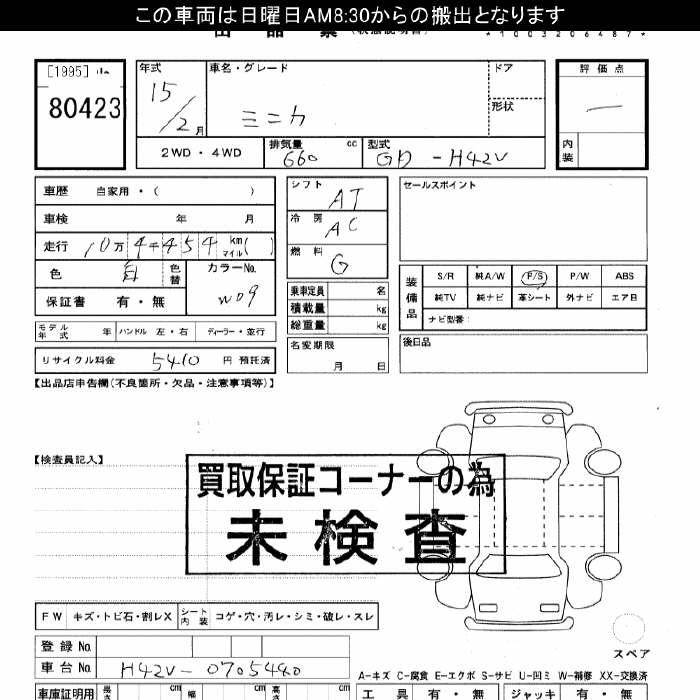 この車両は日曜日AM8:30からの搬出となります
*1003206487*
[1995]
80423
年式 15/2月
車名・グレード ミニカ
ドア
形状
評価点 —
内装
2WD・4WD
排気量 660 cc
型式 GD-H42V
車歴 自家用・( )
車検 年 月
走行 10万4千454 km マイル( )
色 白 色替
カラーNo. W09
保証書 有・無
シフト AT
冷房 AC
燃料 G
乗車定員 名
積載量 kg
総重量 kg
名変期限 月 日
セールスポイント
装備品
S/R 純A/W P/S P/W ABS
純TV 純ナビ 革シート 外ナビ エア日
ナビ型番:
後日品
モデル年式 年 ハンドル 左・右 ディーラー・並行
リサイクル料金 5410 円 預託済
【出品店申告欄(不良箇所・欠品・注意事項等)】
【検査員記入】
買取保証コーナーの為
未検査
FW キズ・トビ石・割レX シート内装 コゲ・穴・汚レ・シミ・破レ・スレ
スペア
登録No.
車台No. H42V-0705440
A-キズ C-腐食 E-エクボ S-サビ U-凹ミ W-補修 XX-交換済
車庫証明用 長さ cm 幅 cm 高さ cm
工具 有・無 ジャッキ 有・無